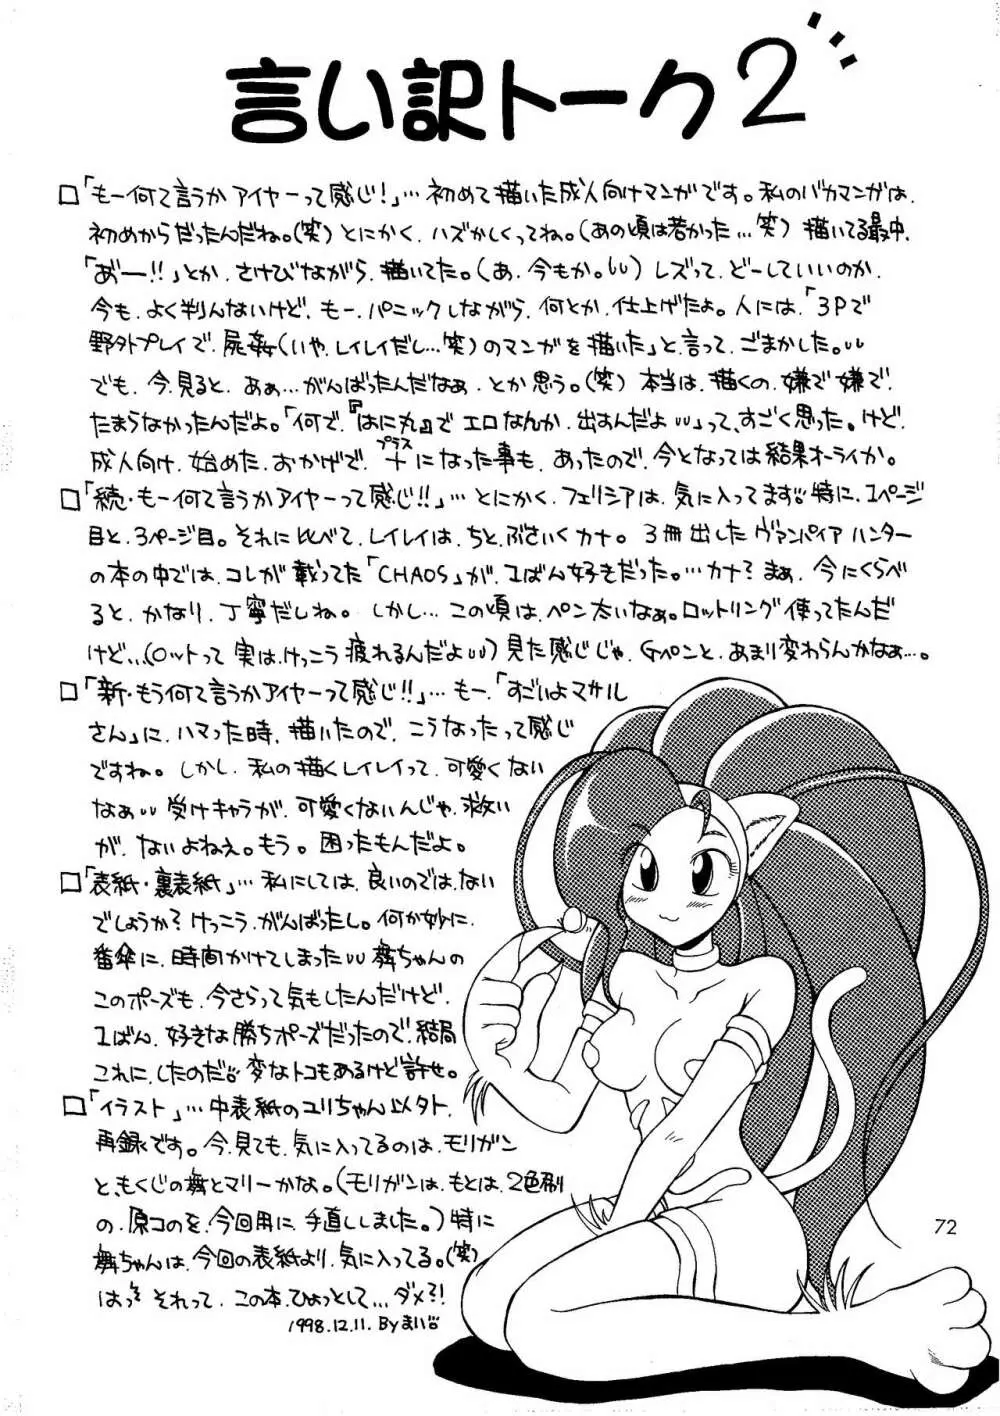 言い訳トーク2
□「もー何て言うかアイヤーって感じ!」… 初めて描いた成人向けマンガです。私のバカマンガは、
初めからだったんだね。(笑)とにかく、ハズかしくってね。(あの頃は若かった…笑)描いてる最中、
「あ゛ー!!」とか、さけびながら、描いてた。(あ、今もか。)レズって、どーしていいのか、
今も、よく判んないけど、もー、パニックしながら、何とか、仕上げたよ。人には、「3Pで
野外プレイで、屍姦(いや、レイレイだし…笑)のマンガを描いた」と、言って、ごまかした。
でも、今、見ると、あぁ…がんばったんだなぁ、とか思う。(笑)本当は、描くの、嫌で嫌で、
たまらなかったんだよ。「何で、『はに丸』でエロなんか、出すんだよ」って、すごく思った。けど、
成人向け、始めた、おかげで、プラス+になった事も、あったので、今となっては結果オーライか。
□「続・もー何て言うかアイヤーって感じ!!」… とにかく、フェリシアは、気に入ってます。特に、1ページ
目と、3ページ目。それに比べて、レイレイは、ちと、ぶさいくカナ。3冊出したヴァンパイアハンター
の本の中では、コレが載ってた「CHAOS」が、1ばん好きだった。…カナ?まぁ、今にくらべ
ると、かなり、丁寧だしね。しかし…この頃は、ペン太いなぁ。ロットリング使ってたんだ
けど…(ロットって実は、けっこう疲れるんだよ)見た感じじゃ、Gペンと、あまり変わらんかなぁ…。
□「新・もう何て言うかアイヤーって感じ!!」… もー、「すごいよマサル
さん」に、ハマった時、描いたので、こうなったって感じ
ですね。しかし、私の描くレイレイって、可愛くない
なぁ 受けキャラが、可愛くないんじゃ、救い
が、ないよねえ。もう。困ったもんだよ。
□「表紙・裏表紙」… 私にしては、良いのでは、ない
でしょうか?けっこう、がんばったし。何か妙に、
番傘に、時間かけてしまった 舞ちゃんの
このポーズも、今さらって気もしたんだけど、
1ばん、好きな勝ちポーズだったので、結局
これに、したのだ。変なトコもあるけど許せ。
□「イラスト」… 中表紙のユリちゃん以外、
再録です。今、見ても、気に入ってるのは、モリガン
と、もくじの舞とマリーかな。(モリガンは、もとは、2色刷
の、原コのを、今回用に、手直ししました。)特に
舞ちゃんは、今回の表紙より、気に入ってる。(笑)
はっ それって、この本、ひょっとして…ダメ?!
1998.12.11. By まい
72